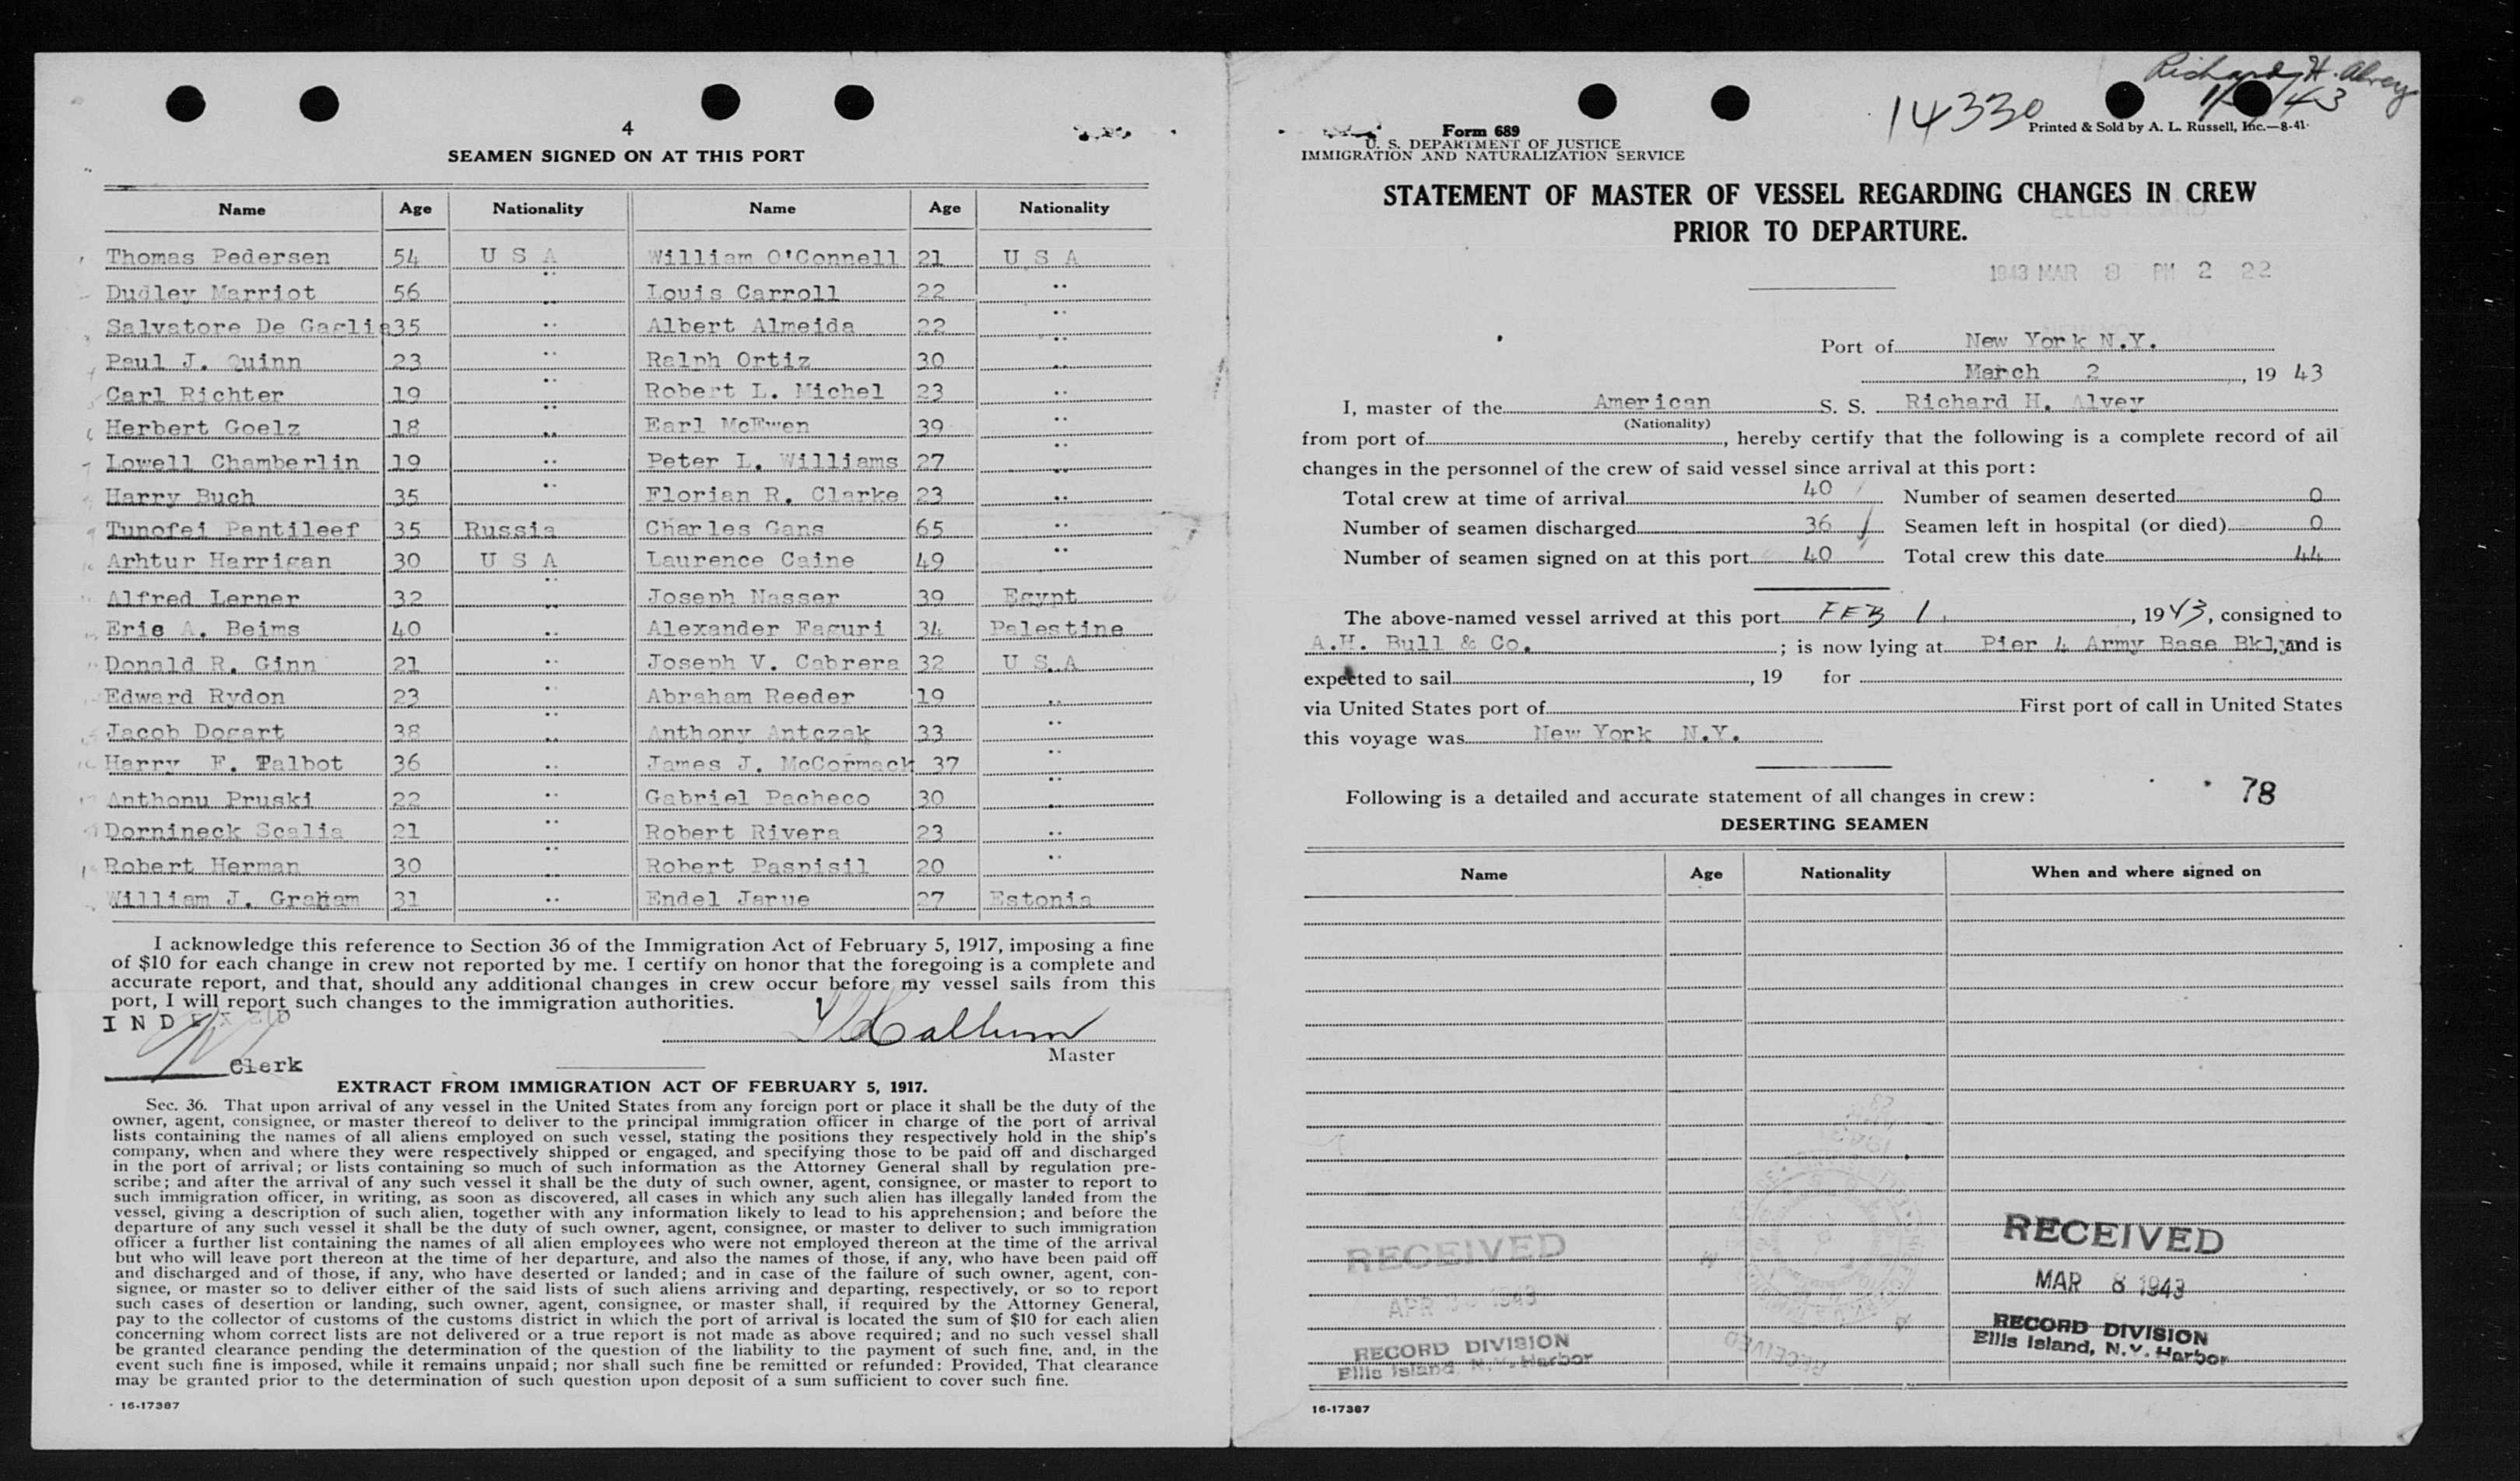 4
SEAMEN SIGNED ON AT THIS PORT
Name Age Nationality Name Age Nationality
Thomas Pedersen 54 U S A William O'Connell 21 U S A
Dudley Marriot 56 " Louis Carroll 22 "
Salvatore De Gaglia 35 " Albert Almeida 22 "
Paul J. Quinn 23 " Ralph Ortiz 30 "
Carl Richter 19 " Robert L. Michel 23 "
Herbert Goelz 18 " Earl McEwen 39 "
Lowell Chamberlin 19 " Peter L. Williams 27 "
Harry Buch 35 " Florian R. Clarke 23 "
Tunofei Pantileef 35 Russia Charles Gans 65 "
Arhtur Harrigan 30 U S A Laurence Caine 49 "
Alfred Lerner 32 " Joseph Nasser 39 Egypt
Eric A. Beims 40 " Alexander Faguri 34 Palestine
Donald R. Ginn 21 " Joseph V. Cabrera 32 U S A
Edward Rydon 23 " Abraham Reeder 19 "
Jacob Dogart 38 " Anthony Antczak 33 "
Harry F. Talbot 36 " James J. McCormack 37 "
Anthonu Pruski 22 " Gabriel Pacheco 30 "
Dornineck Scalia 21 " Robert Rivera 23 "
Robert Herman 30 " Robert Paspisil 20 "
William J. Graham 31 " Endel Jarue 27 Estonia
I acknowledge this reference to Section 36 of the Immigration Act of February 5, 1917, imposing a fine
of $10 for each change in crew not reported by me. I certify on honor that the foregoing is a complete and
accurate report, and that, should any additional changes in crew occur before my vessel sails from this
port, I will report such changes to the immigration authorities.
INDEXED
Clerk
Master
EXTRACT FROM IMMIGRATION ACT OF FEBRUARY 5, 1917.
Sec. 36. That upon arrival of any vessel in the United States from any foreign port or place it shall be the duty of the
owner, agent, consignee, or master thereof to deliver to the principal immigration officer in charge of the port of arrival
lists containing the names of all aliens employed on such vessel, stating the positions they respectively hold in the ship's
company, when and where they were respectively shipped or engaged, and specifying those to be paid off and discharged
in the port of arrival; or lists containing so much of such information as the Attorney General shall by regulation pre-
scribe; and after the arrival of any such vessel it shall be the duty of such owner, agent, consignee, or master to report to
such immigration officer, in writing, as soon as discovered, all cases in which any such alien has illegally landed from the
vessel, giving a description of such alien, together with any information likely to lead to his apprehension; and before the
departure of any such vessel it shall be the duty of such owner, agent, consignee, or master to deliver to such immigration
officer a further list containing the names of all alien employees who were not employed thereon at the time of the arrival
but who will leave port thereon at the time of her departure, and also the names of those, if any, who have been paid off
and discharged and of those, if any, who have deserted or landed; and in case of the failure of such owner, agent, con-
signee, or master so to deliver either of the said lists of such aliens arriving and departing, respectively, or so to report
such cases of desertion or landing, such owner, agent, consignee, or master shall, if required by the Attorney General,
pay to the collector of customs of the customs district in which the port of arrival is located the sum of $10 for each alien
concerning whom correct lists are not delivered or a true report is not made as above required; and no such vessel shall
be granted clearance pending the determination of the question of the liability to the payment of such fine, and, in the
event such fine is imposed, while it remains unpaid; nor shall such fine be remitted or refunded: Provided, That clearance
may be granted prior to the determination of such question upon deposit of a sum sufficient to cover such fine.
16-17387
Richard H. Alvey
14330
Form 689
Printed & Sold by A. L. Russell, Inc.—8-41
U. S. DEPARTMENT OF JUSTICE
IMMIGRATION AND NATURALIZATION SERVICE
STATEMENT OF MASTER OF VESSEL REGARDING CHANGES IN CREW
PRIOR TO DEPARTURE.
1943 MAR 8 PM 2 22
Port of New York N.Y.
March 2, 1943
I, master of the American S. S. Richard H. Alvey
(Nationality)
from port of, hereby certify that the following is a complete record of all
changes in the personnel of the crew of said vessel since arrival at this port:
Total crew at time of arrival 40 Number of seamen deserted 0
Number of seamen discharged 36 Seamen left in hospital (or died) 0
Number of seamen signed on at this port 40 Total crew this date 44
The above-named vessel arrived at this port FEB 1, 1943, consigned to
A.H. Bull & Co. ; is now lying at Pier 4 Army Base Bklyn, and is
expected to sail, 19 for
via United States port of First port of call in United States
this voyage was New York N.Y.
Following is a detailed and accurate statement of all changes in crew: 78
DESERTING SEAMEN
Name Age Nationality When and where signed on
RECEIVED
MAR 8 1943
RECORD DIVISION
Ellis Island, N.Y. Harbor
RECEIVED
APR 1943
RECORD DIVISION
Ellis Island, N.Y. Harbor
RECEIVED
16-17387